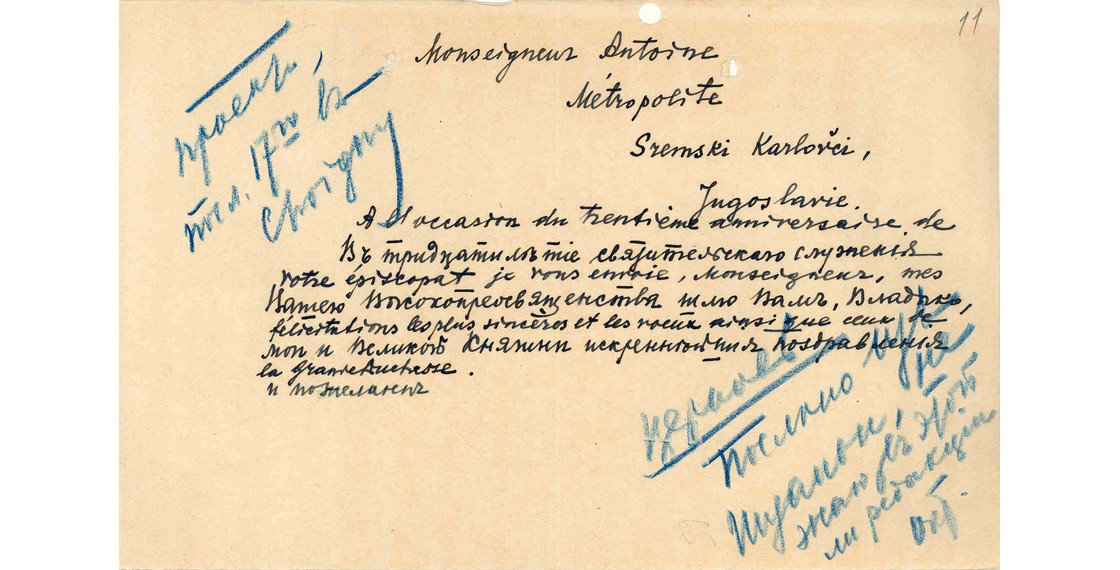 11
Monseigneur Antoine
Métropolite
Sremski Karlovči,
Jugoslavie.
проектъ,
посл. 17го въ
A l'occasion du trentième anniversaire de
Въ тридцатилѣтіе святительскаго служенія
votre épiscopat je vous envoie, Monseigneur, mes
Вашего Высокопреосвященства шлю Вамъ, Владыко,
félicitations les plus sincères et les voeux ainsi que ceux de
мои и Великой Княгини искреннѣйшія поздравленія
la Grande Duchesse.
и пожеланія
Послано изъ
не
этой
ли редакціи